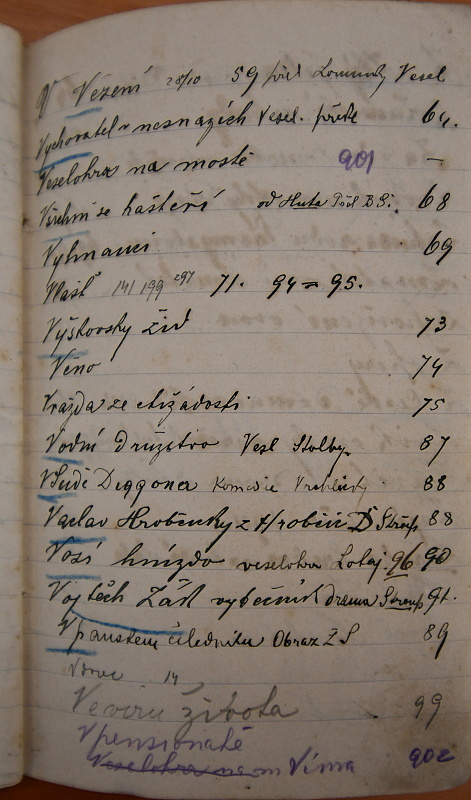 V Vězení 28/10 59 přel Lomnický Vesel
Vychovatel v nesnázích Vesel. přele 64.
Veselohra na mostě 901 —
Všichni se hašteří od Huta Přel B.Š. 68
Vyhnanci 69
Mašť 141 199 297 71. 94 = 95.
Výškovsky žid 73
Věno 74
Vražda ze ctižádosti 75
Vodní družstvo Vesl Stolby 87
V Sudě Diogena Komedie Vrchlický 88
Václav Hrobčický z Hrobčic D Stroup 88
Vosí hnízdo veselohra Lotaj. 96 90
Vojtěch Žák výtečník drama Stroup 91.
V panském čeledníku Obraz Z S 89
Vdovec 14
Ve víru života 99
V pensionátě
Veselohra na m Vima 902